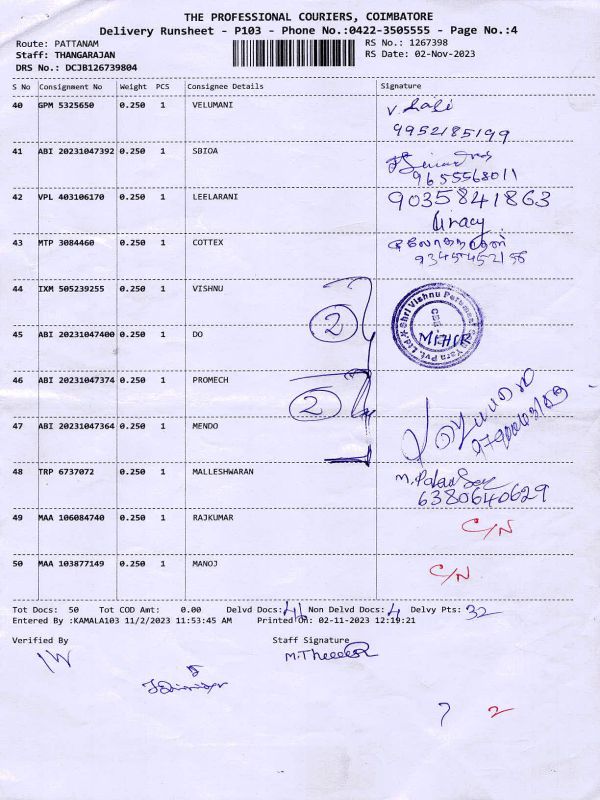 THE PROFESSIONAL COURIERS, COIMBATORE
Delivery Runsheet - P103 - Phone No.:0422-3505555 - Page No.:4
Route: PATTANAM RS No.: 1267398
Staff: THANGARAJAN RS Date: 02-Nov-2023
DRS No.: DCJB126739804
S No Consignment No Weight PCS Consignee Details Signature
40 GPM 5325650 0.250 1 VELUMANI
9952185199
41 ABI 20231047392 0.250 1 SBIOA
9655568011
42 VPL 403106170 0.250 1 LEELARANI 9035841863
43 MTP 3084460 0.250 1 COTTEX
44 IXM 505239255 0.250 1 VISHNU
2
MIHIR
45 ABI 20231047400 0.250 1 DO
46 ABI 20231047374 0.250 1 PROMECH
2
47 ABI 20231047364 0.250 1 MENDO
48 TRP 6737072 0.250 1 MALLESHWARAN
6380640629
49 MAA 106084740 0.250 1 RAJKUMAR C/N
50 MAA 103877149 0.250 1 MANOJ C/N
Tot Docs: 50 Tot COD Amt: 0.00 Delvd Docs: 46 Non Delvd Docs: 4 Delvy Pts: 32
Entered By :KAMALA103 11/2/2023 11:53:45 AM Printed on: 02-11-2023 12:19:21
Verified By Staff Signature
7 2